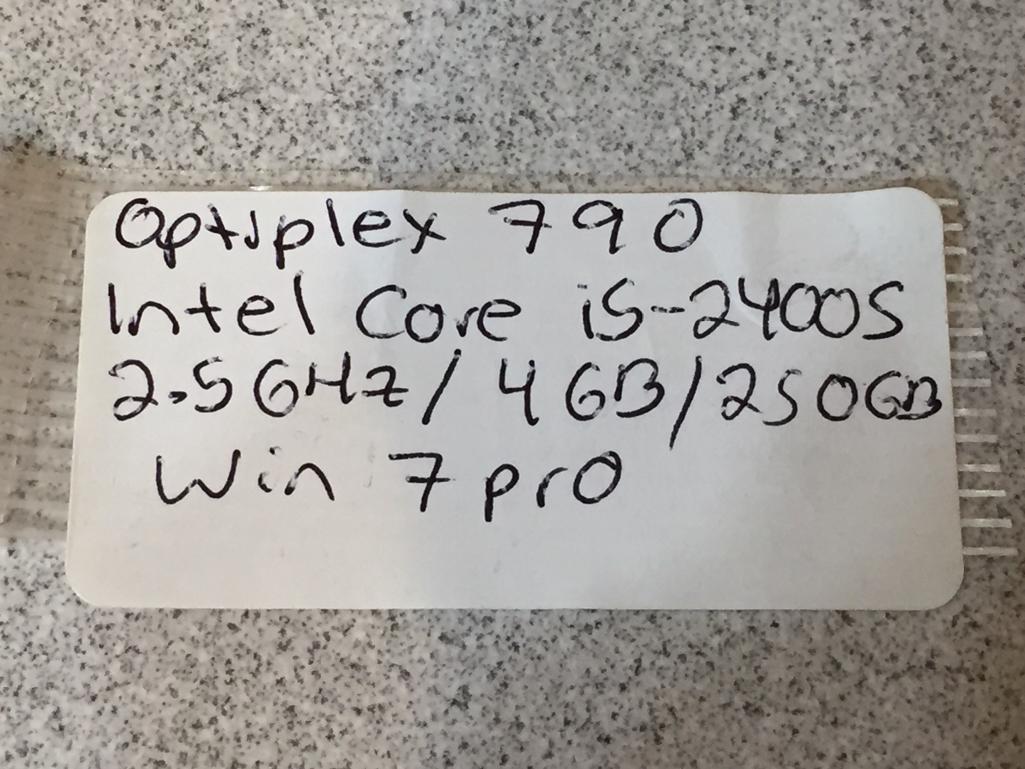 Optiplex 790
Intel Core i5-2400S
2.5GHz/4GB/250GB
Win 7 pro